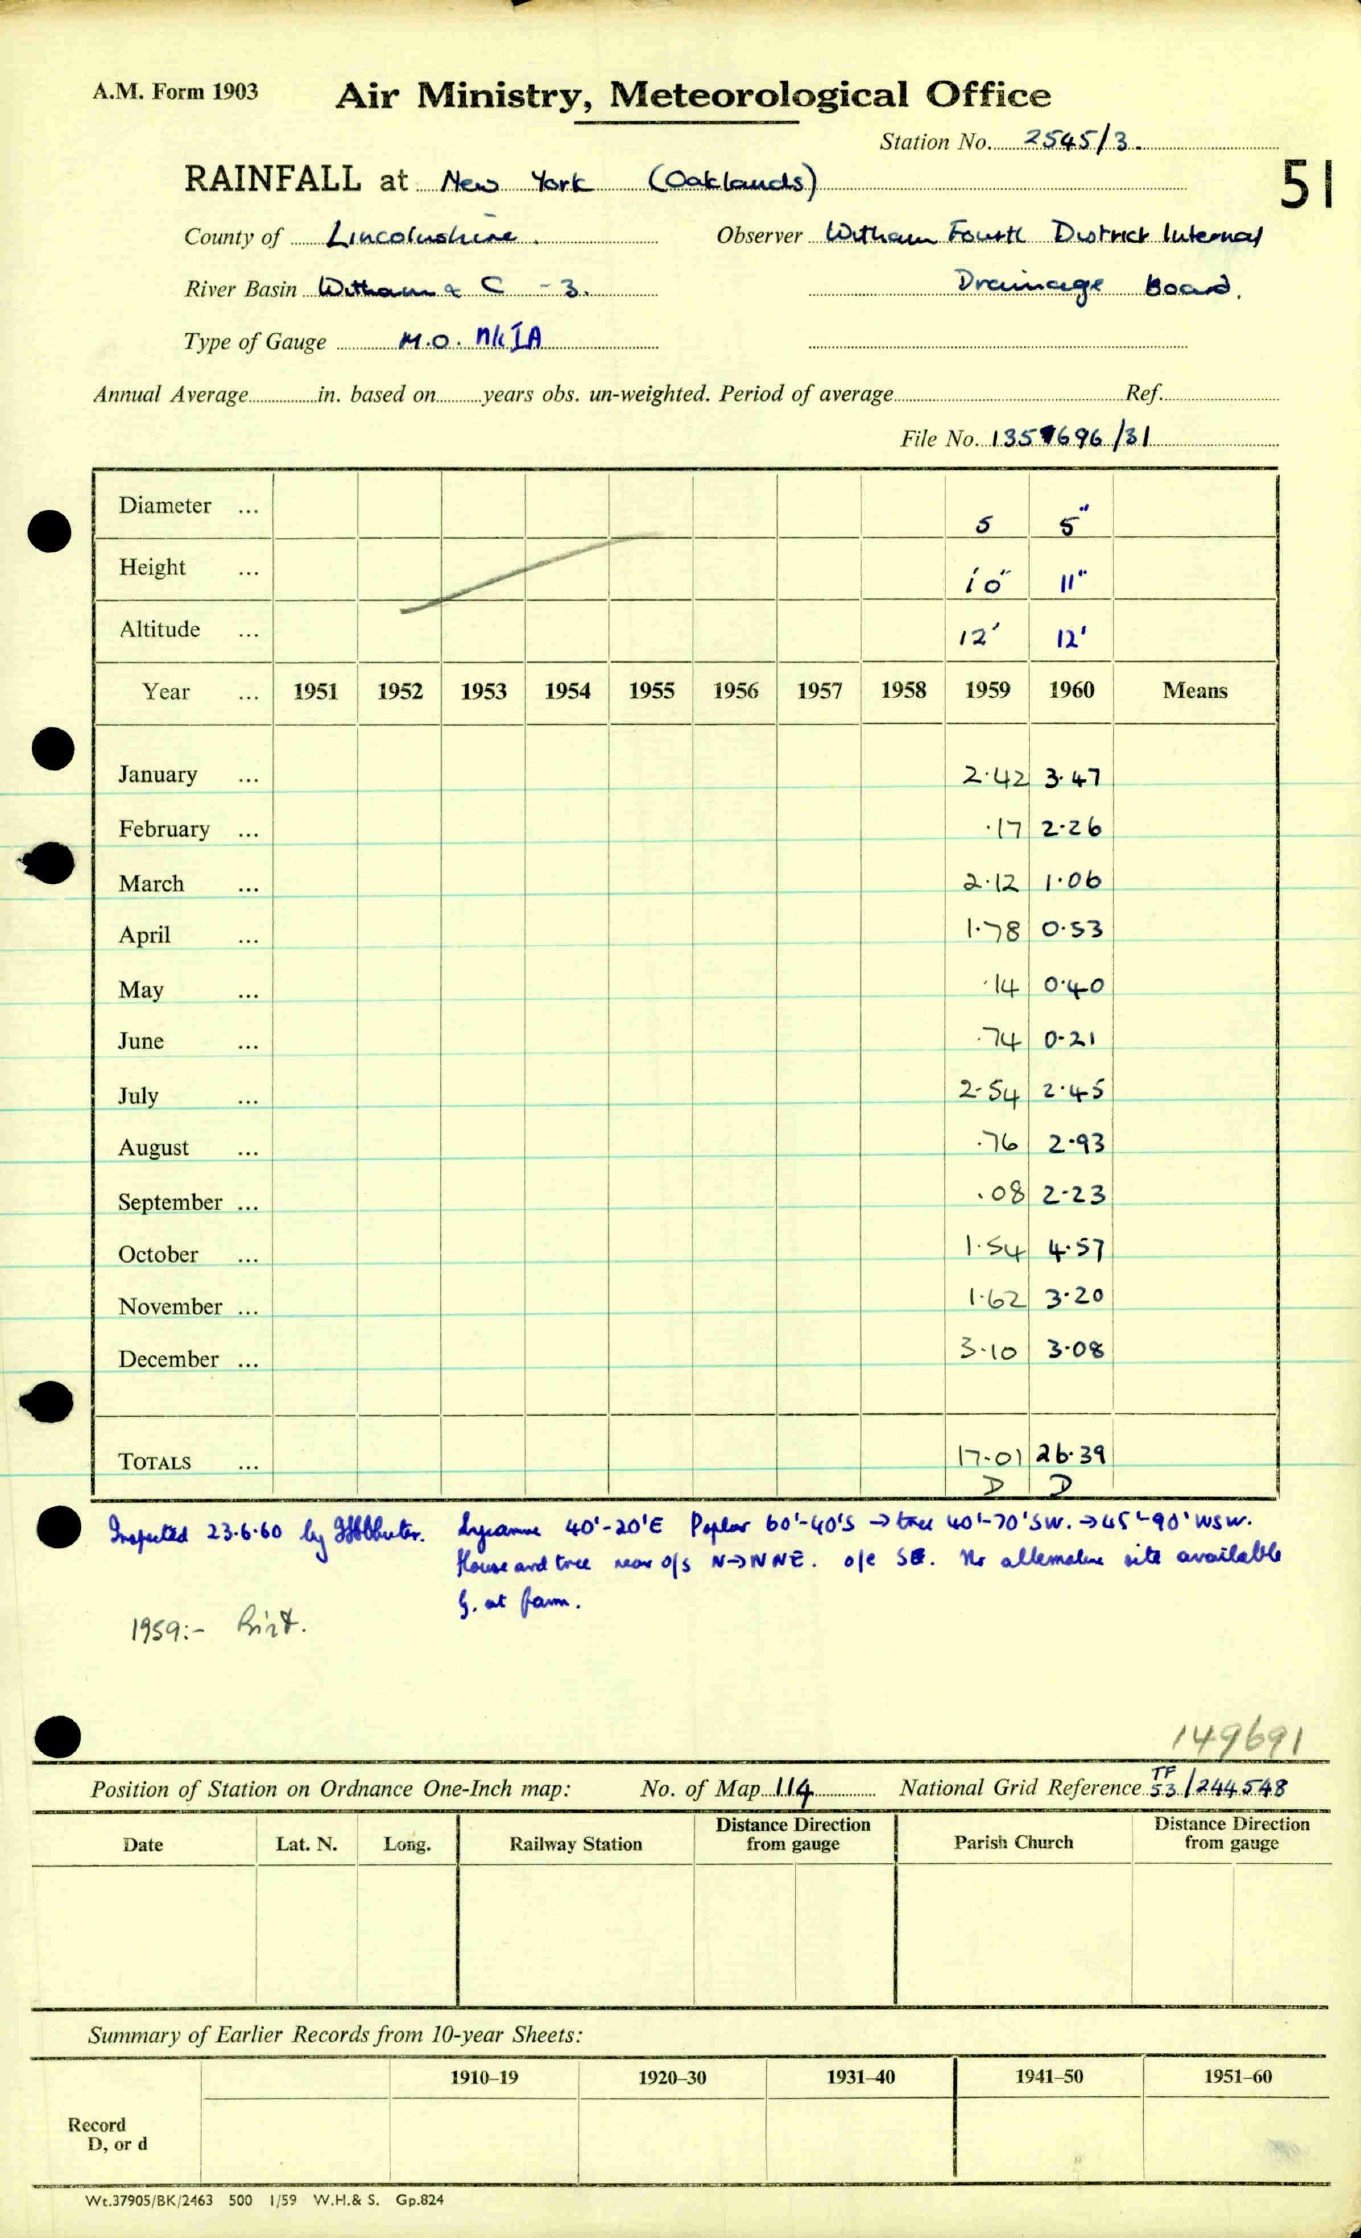 A.M. Form 1903
Air Ministry, Meteorological Office
Station No. 2545/3.
51
RAINFALL at New York (Oaklands)
County of Lincolnshire. Observer Witham Fourth District Internal
River Basin Witham & C - 3. Drainage Board.
Type of Gauge M.O. MkIA
Annual Average in. based on years obs. un-weighted. Period of average Ref.
File No. /31
Diameter ... 5 5"
Height ... 10" 11"
Altitude ... 12' 12'
Year ... 1951 1952 1953 1954 1955 1956 1957 1958 1959 1960 Means
January ... 2.42 3.47
February ... .17 2.26
March ... 2.12 1.06
April ... 1.78 0.53
May ... .14 0.40
June ... .74 0.21
July ... 2.54 2.45
August ... .76 2.93
September ... .08 2.23
October ... 1.54 4.57
November ... 1.62 3.20
December ... 3.10 3.08
TOTALS ... 17.01 26.39
D D
Inspected 23.6.60 by Sycamore 40'-20'E Poplar 60'-40'S → tree 40'-70'SW. → 45'-90'WSW.
House and tree near o/s N→NNE. o/e SE. No alternative site available
G. at farm.
1959:-
149691
Position of Station on Ordnance One-Inch map: No. of Map 114 National Grid Reference TF 53/244548
Date Lat. N. Long. Railway Station Distance Direction from gauge Parish Church Distance Direction from gauge
Summary of Earlier Records from 10-year Sheets:
1910–19 1920–30 1931–40 1941–50 1951–60
Record
D, or d
Wt.37905/BK/2463 500 1/59 W.H.& S. Gp.824